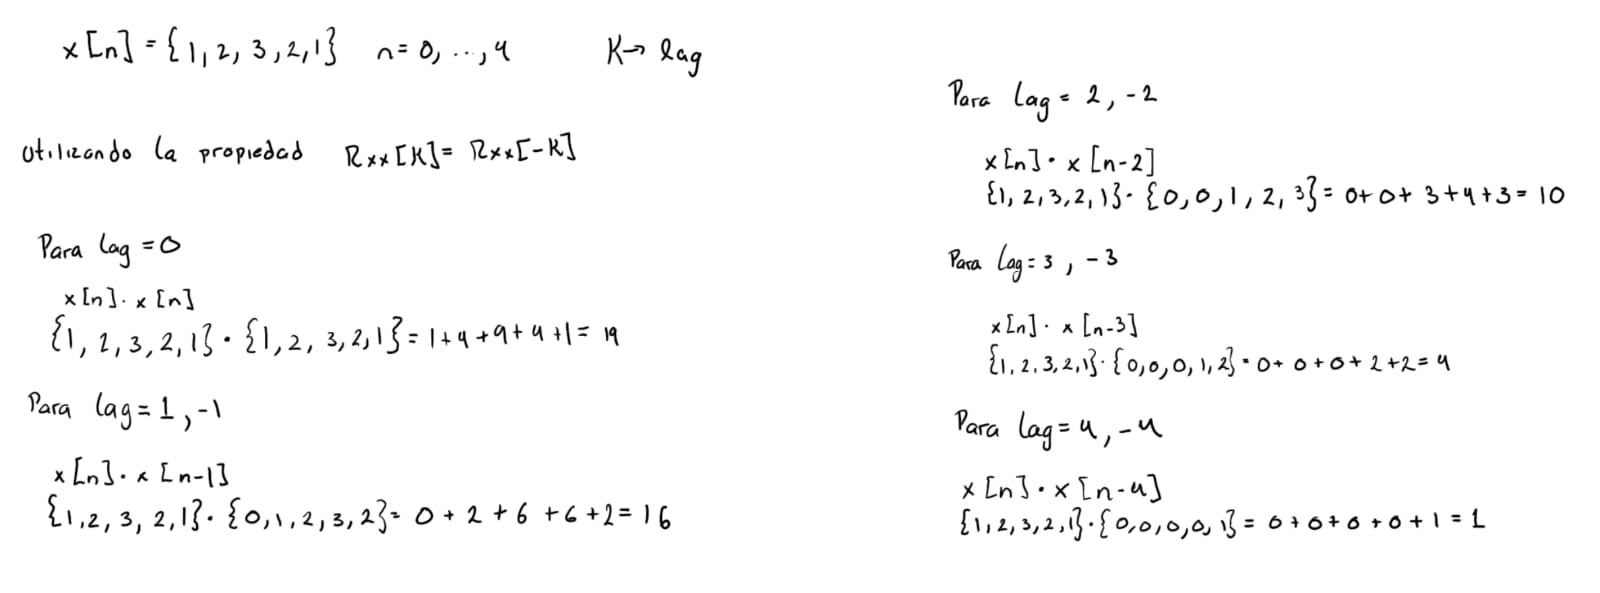 x[n] = {1, 2, 3, 2, 1} n = 0, ..., 4 K → lag
Utilizando la propiedad Rxx[K] = Rxx[-K]
Para lag = 0
x[n] · x[n]
{1, 2, 3, 2, 1} · {1, 2, 3, 2, 1} = 1 + 4 + 9 + 4 + 1 = 19
Para lag = 1, -1
x[n] · x[n-1]
{1, 2, 3, 2, 1} · {0, 1, 2, 3, 2} = 0 + 2 + 6 + 6 + 2 = 16
Para lag = 2, -2
x[n] · x[n-2]
{1, 2, 3, 2, 1} · {0, 0, 1, 2, 3} = 0 + 0 + 3 + 4 + 3 = 10
Para lag = 3, -3
x[n] · x[n-3]
{1, 2, 3, 2, 1} · {0, 0, 0, 1, 2} = 0 + 0 + 0 + 2 + 2 = 4
Para lag = 4, -4
x[n] · x[n-4]
{1, 2, 3, 2, 1} · {0, 0, 0, 0, 1} = 0 + 0 + 0 + 0 + 1 = 1